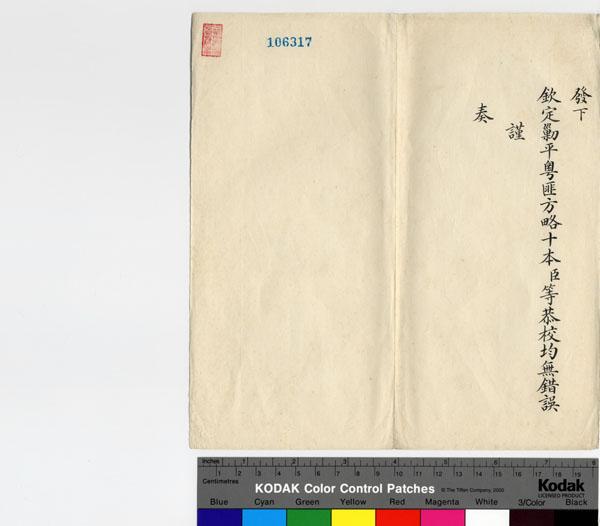 發下
欽定勦平粵匪方略十本臣等恭校均無錯誤
謹
奏
106317
inches 1 2 3 4 5 6 7 8
Centimetres 1 2 3 4 5 6 7 8 9 10 11 12 13 14 15 16 17 18 19
KODAK Color Control Patches © The Tiffen Company, 2000 Kodak
LICENSED PRODUCT
Blue Cyan Green Yellow Red Magenta White 3/Color Black